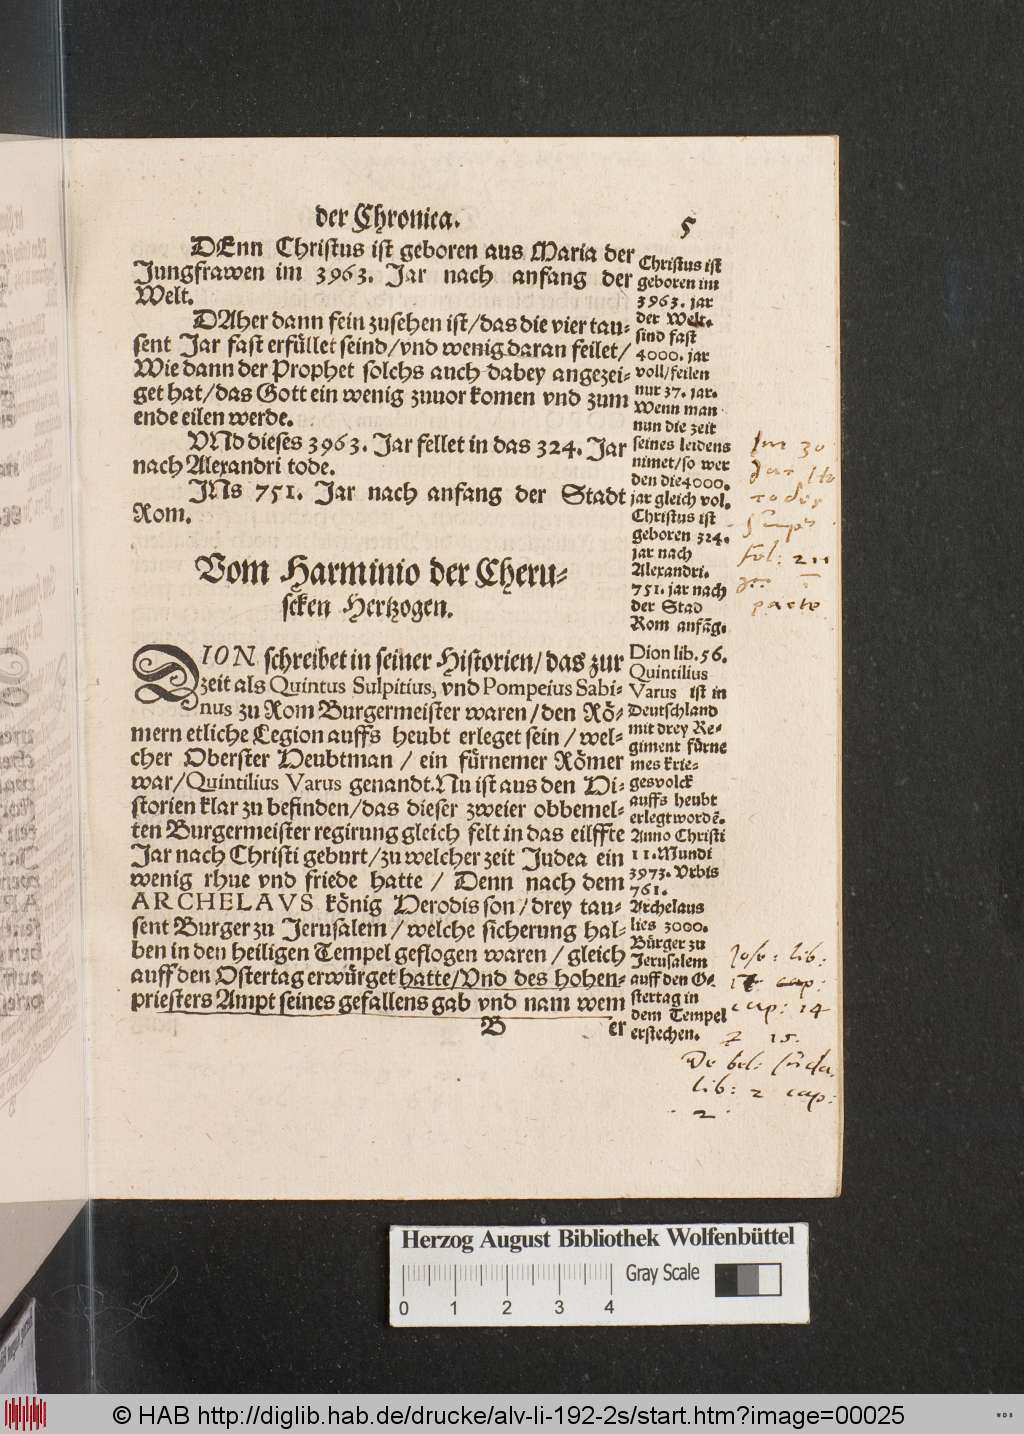 der Chronica. 5
DEnn Christus ist geboren aus Maria der
Jungfrawen im 3963. Jar nach anfang der
Welt.
DAher dann fein zusehen ist/das die vier tau⸗
sent Jar fast erfüllet seind/vnd wenig daran feilet/
Wie dann der Prophet solchs auch dabey angezei⸗
get hat/das Gott ein wenig zuuor komen vnd zum
ende eilen werde.
VNd dieses 3963. Jar fellet in das 324. Jar
nach Alexandri tode.
INs 751. Jar nach anfang der Stadt
Rom.
Christus ist
geboren im
3963. jar
der Welt.
sind fast
4000. jar
voll/feilen
nur 37. jar.
Wenn man
nun die zeit
seines leidens
nimet/so wer
den die 4000.
jar gleich vol.
Christus ist
geboren 324.
jar nach
Alexandri.
751. jar nach
der Stad
Rom anfãg.
Vom Harminio der Cheru⸗
scken Hertzogen.
DION schreibet in seiner Historien/das zur
zeit als Quintus Sulpitius, vnd Pompeius Sabi⸗
nus zu Rom Burgermeister waren/den Rö⸗
mern etliche Legion auffs heubt erleget sein/wel⸗
cher Oberster Heubtman/ein fürnemer Römer
war/Quintilius Varus genandt. Nu ist aus den Hi⸗
storien klar zu befinden/das dieser zweier obbemel⸗
ten Burgermeister regirung gleich felt in das eilffte
Jar nach Christi geburt/zu welcher zeit Judea ein
wenig rhue vnd friede hatte/Denn nach dem
ARCHELAVS könig Herodis son/drey tau⸗
sent Burger zu Jerusalem/welche sicherung hal⸗
ben in den heiligen Tempel geflogen waren/gleich
auff den Ostertag erwürget hatte/Vnd des hohen⸗
priesters Ampt seines gefallens gab vnd nam wem
B er
Dion lib. 56.
Quintilius
Varus ist in
Deutschland
mit drey Re⸗
giment fürne
mes krie⸗
gesvolck
auffs heubt
erlegt wordẽ.
Anno Christi
11. Mundi
3973. Vrbis
761.
Archelaus
lies 3000.
Bürger zu
Jerusalem
auff den O⸗
stertag in
dem Tempel
erstechen.
fol: 211
pacto
lib:
cap: 14
15.
De bel: Juda.
lib: 2 cap:
2
Herzog August Bibliothek Wolfenbüttel
Gray Scale
0 1 2 3 4
© HAB http://diglib.hab.de/drucke/alv-li-192-2s/start.htm?image=00025
WDB